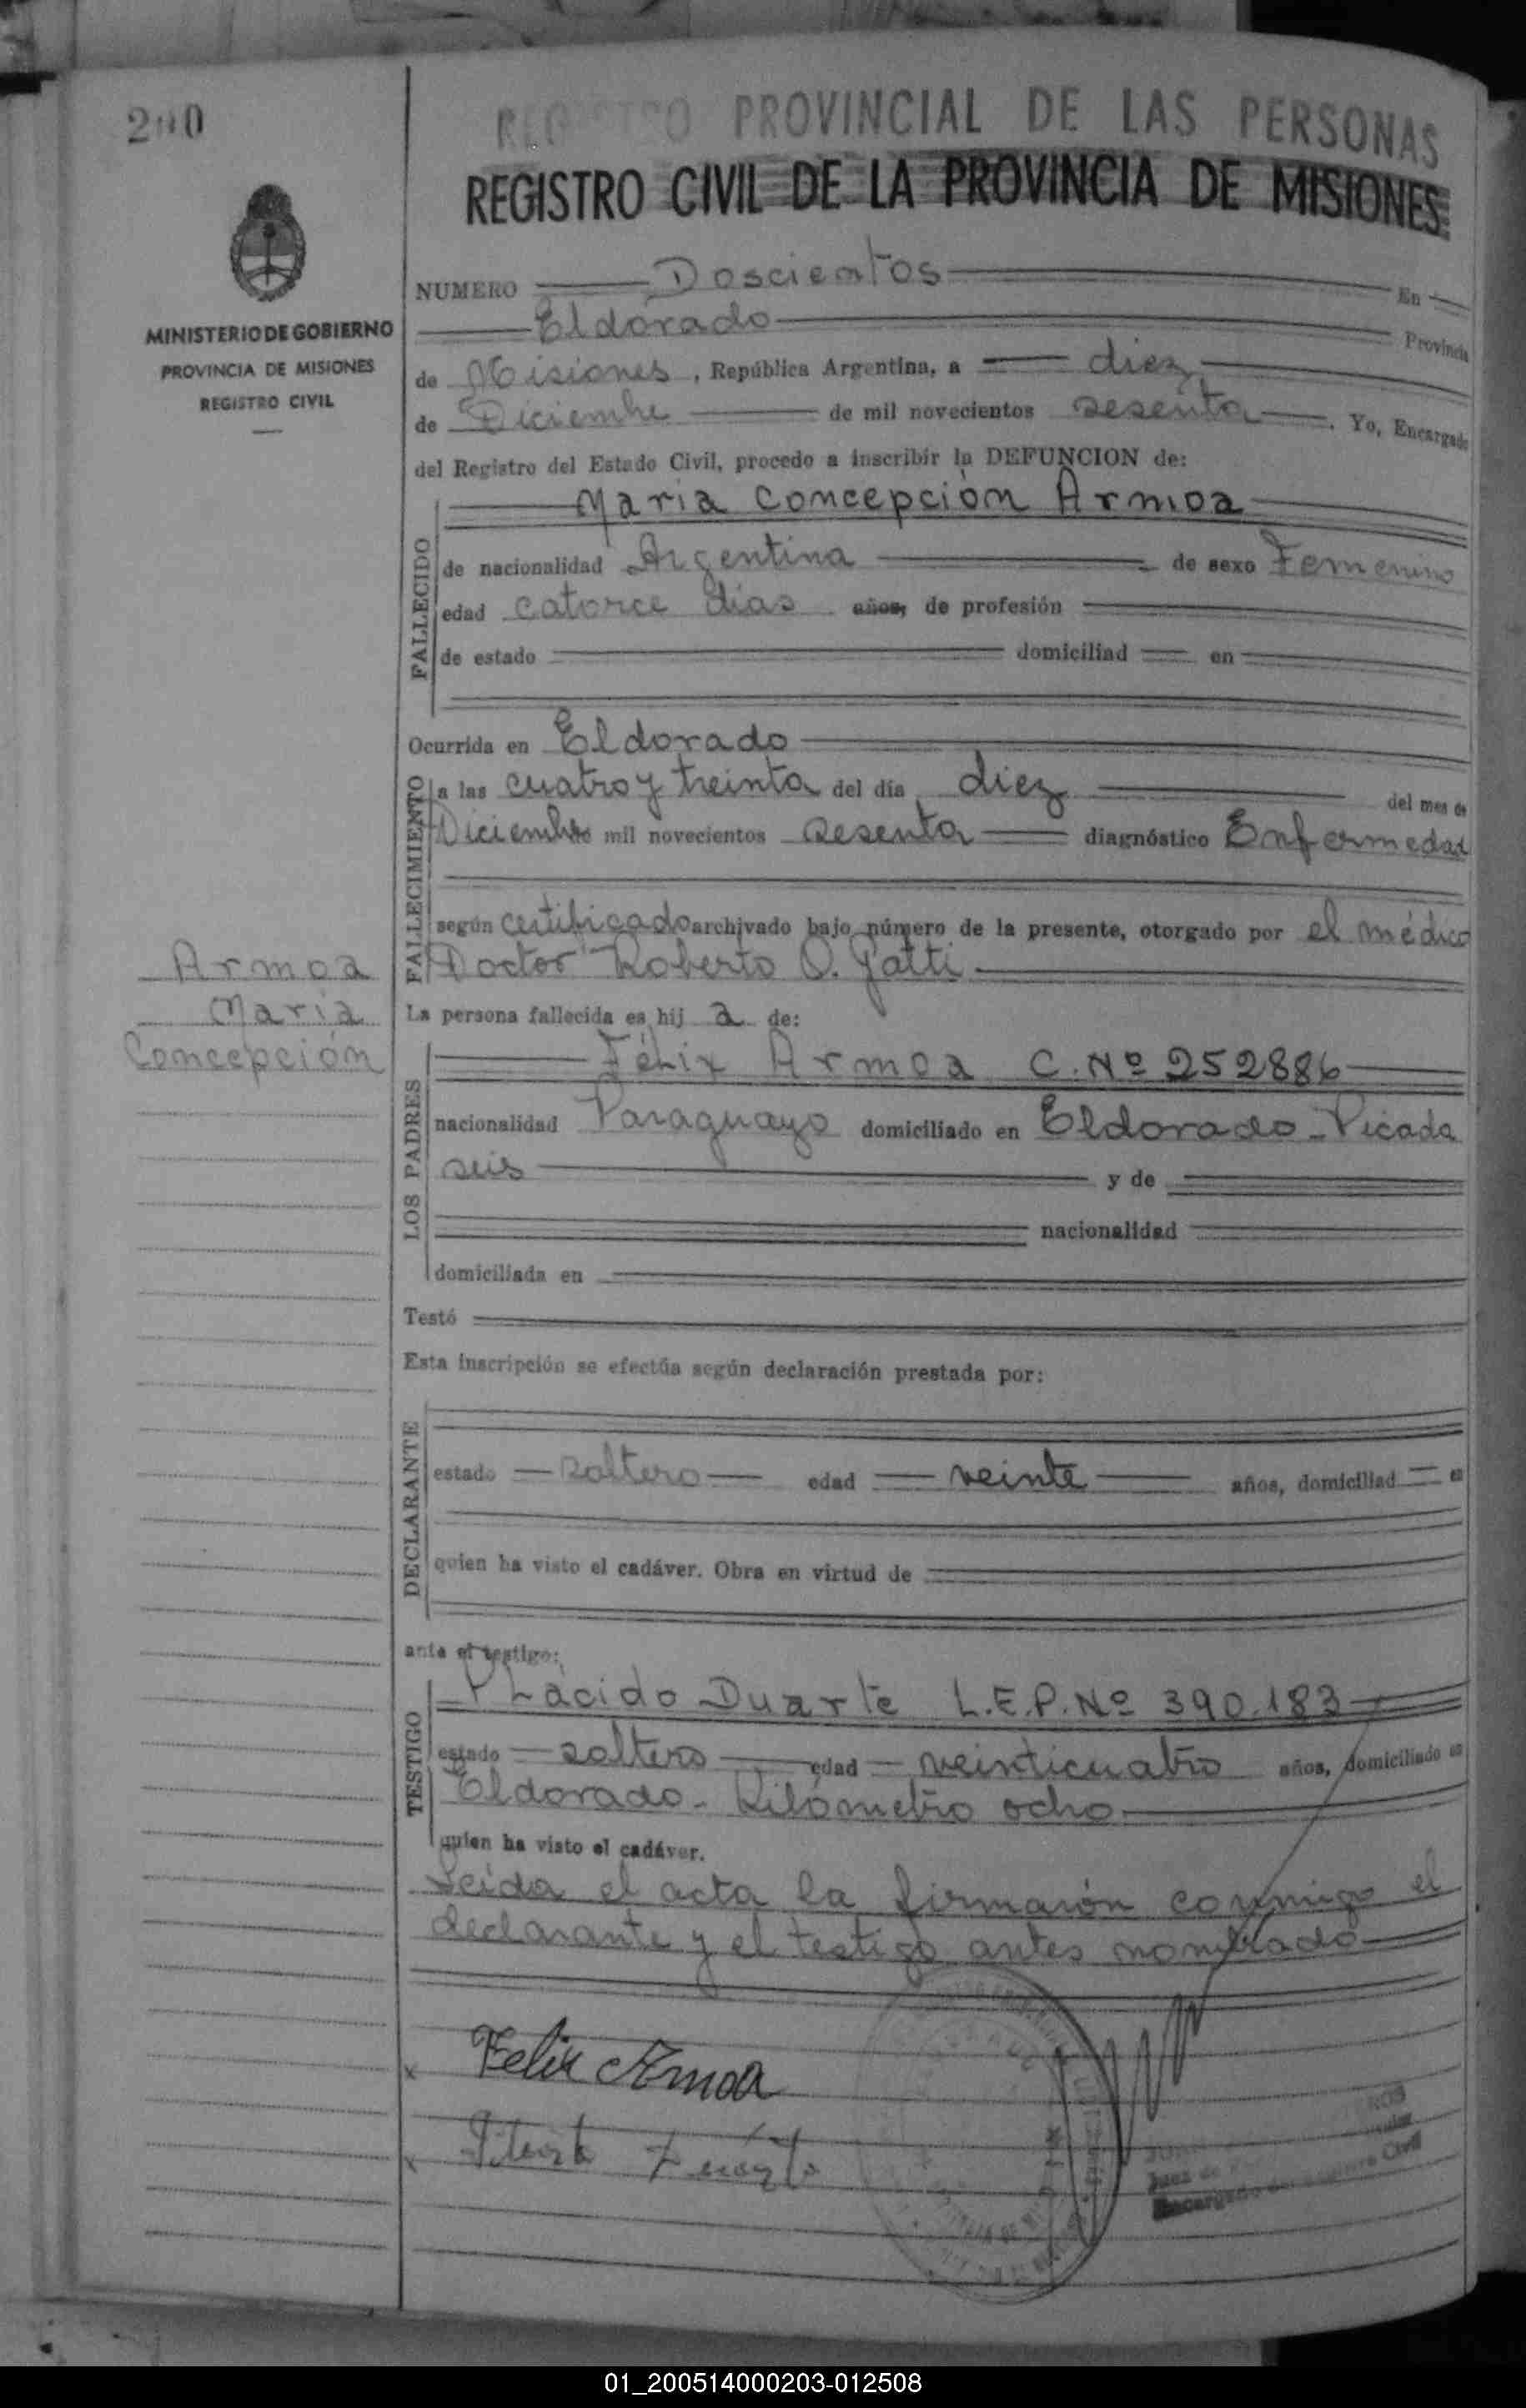 200
REGISTRO PROVINCIAL DE LAS PERSONAS
REGISTRO CIVIL DE LA PROVINCIA DE MISIONES
MINISTERIO DE GOBIERNO
PROVINCIA DE MISIONES
REGISTRO CIVIL
NUMERO Doscientos En
Eldorado Provincia
de Misiones, República Argentina, a diez
de Diciembre de mil novecientos sesenta. Yo, Encargado
del Registro del Estado Civil, procedo a inscribir la DEFUNCION de:
FALLECIDO
Maria Concepción Armoa
de nacionalidad Argentina de sexo Femenino
edad catorce días años, de profesión
de estado domiciliad en
Ocurrida en Eldorado
FALLECIMIENTO
a las cuatro y treinta del día diez del mes de
Diciembre de mil novecientos sesenta diagnóstico Enfermedad
según certificado archivado bajo número de la presente, otorgado por el médico
Doctor Roberto O. Gatti
Armoa
Maria
Concepción
La persona fallecida es hij a de:
LOS PADRES
Félix Armoa C. Nº 252886
nacionalidad Paraguayo domiciliado en Eldorado - Picada
seis y de
nacionalidad
domiciliada en
Testó
Esta inscripción se efectúa según declaración prestada por:
DECLARANTE
estado soltero edad veinte años, domiciliad en
quien ha visto el cadáver. Obra en virtud de
ante el testigo:
TESTIGO
Plácido Duarte L.E.P. Nº 390.183
estado soltero edad veinticuatro años, domiciliado en
Eldorado - Kilómetro ocho
quien ha visto el cadáver.
Leída el acta la firmarón conmigo el
declarante y el testigo antes nombrado
x Felix Armoa
x
Encargado del Registro Civil
01_200514000203-012508